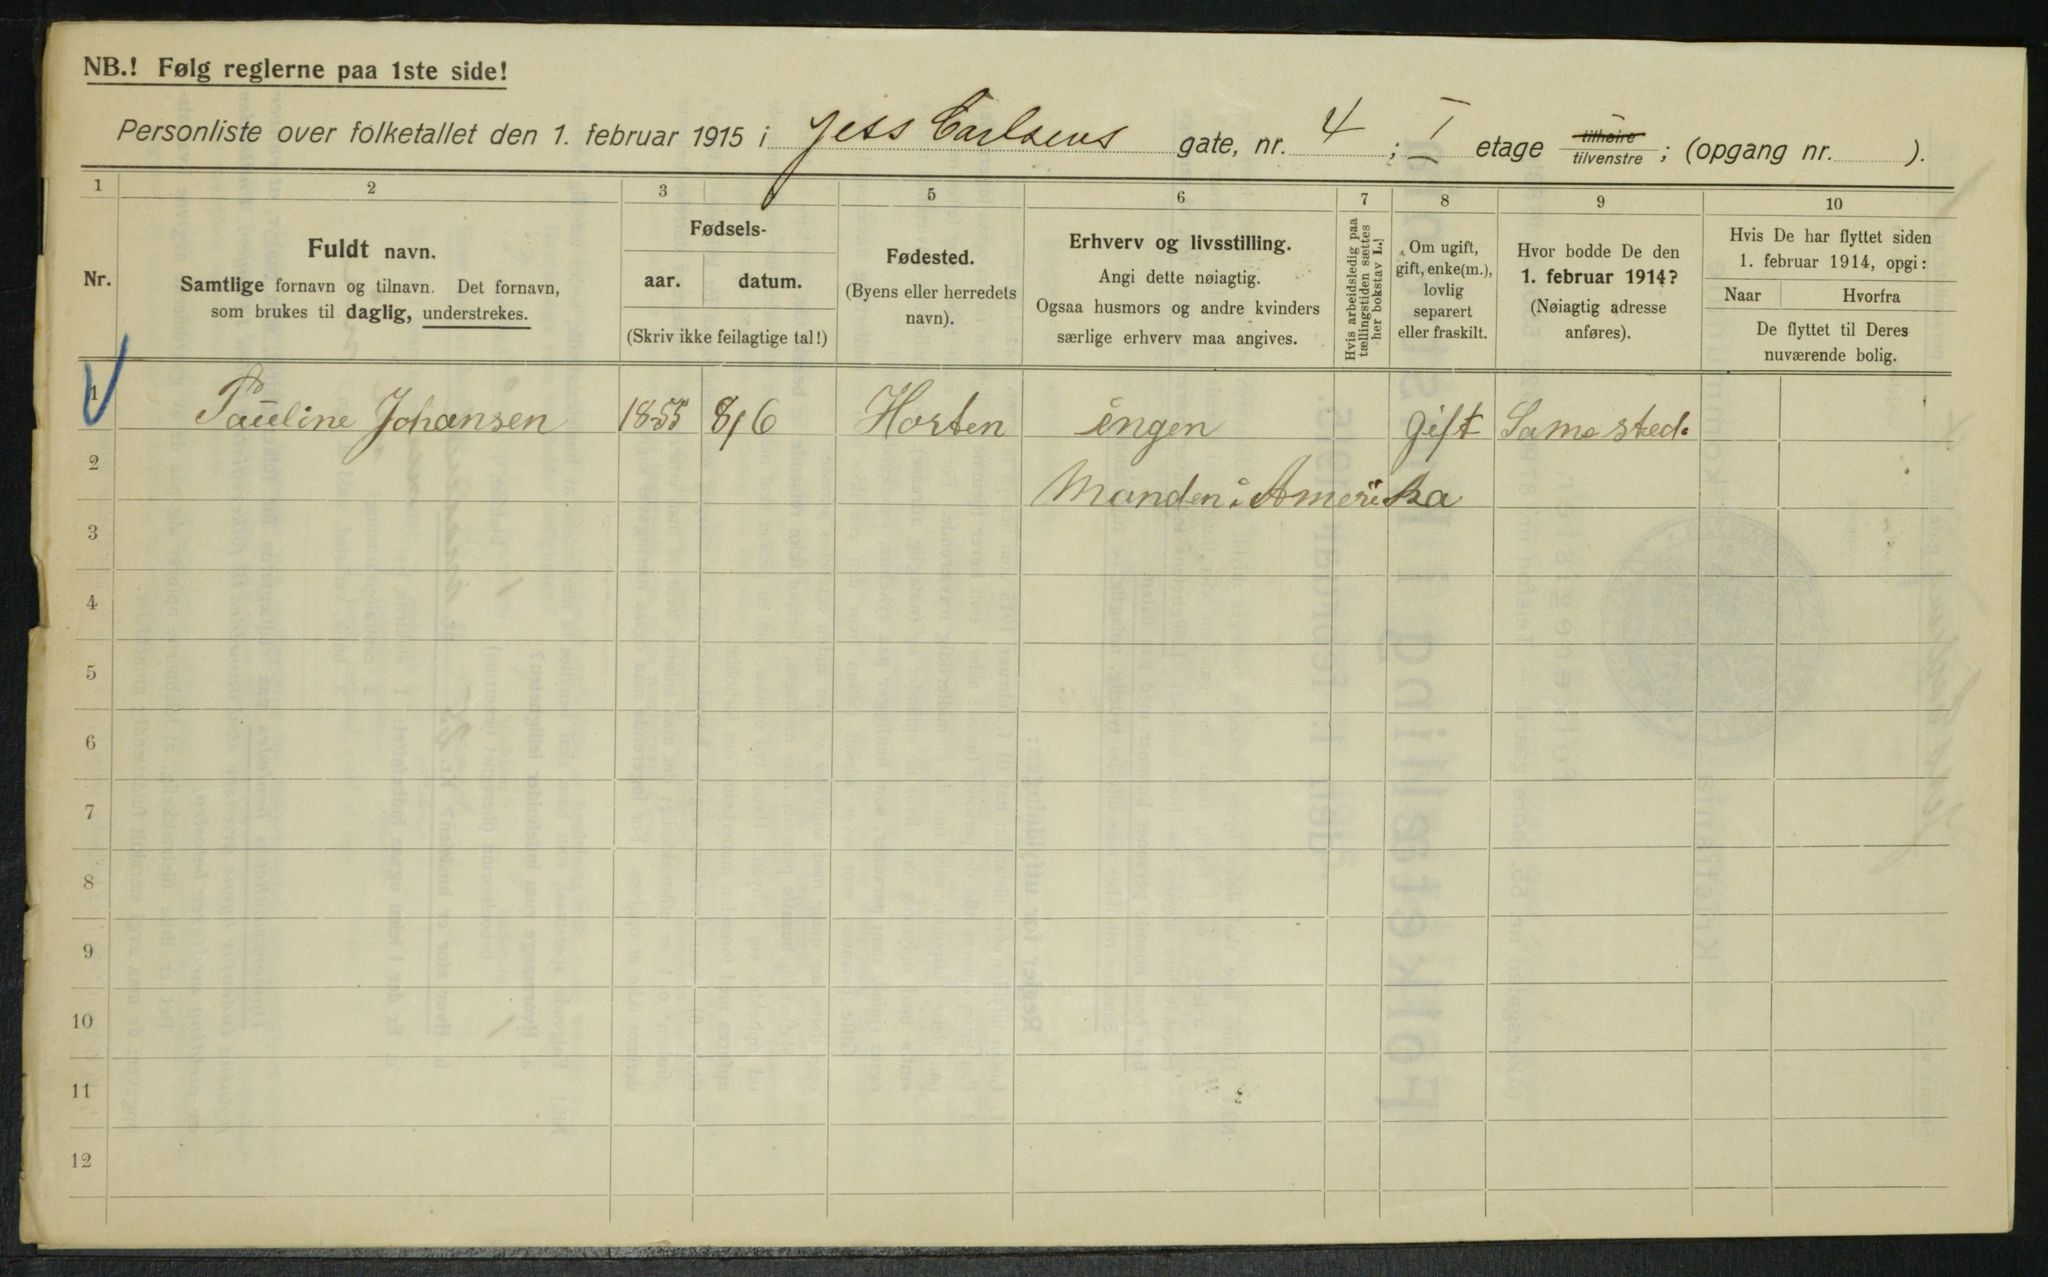 NB.! Følg reglerne paa 1ste side!
Personliste over folketallet den 1. februar 1915 i Jess Carlsens gate, nr. 4 ; I etage tilhøire tilvenstre ; (opgang nr. ).
1 2 3 4 5 6 7 8 9 10
Nr.
Fuldt navn.
Samtlige fornavn og tilnavn. Det fornavn,
som brukes til daglig, understrekes.
Fødsels-
aar. datum.
(Skriv ikke feilagtige tal!)
Fødested.
(Byens eller herredets
navn).
Erhverv og livsstilling.
Angi dette nøiagtig.
Ogsaa husmors og andre kvinders
særlige erhverv maa angives.
Hvis arbeidsledig paa
tællingstiden sættes
her bokstav L.!
Om ugift,
gift, enke(m.),
lovlig
separert
eller fraskilt.
Hvor bodde De den
1. februar 1914?
(Nøiagtig adresse
anføres).
Hvis De har flyttet siden
1. februar 1914, opgi:
Naar Hvorfra
De flyttet til Deres
nuværende bolig.
1 Pauline Johansen 1855 8/6 Horten ingen gift Samested.
2 Manden i Amerika
3
4
5
6
7
8
9
10
11
12